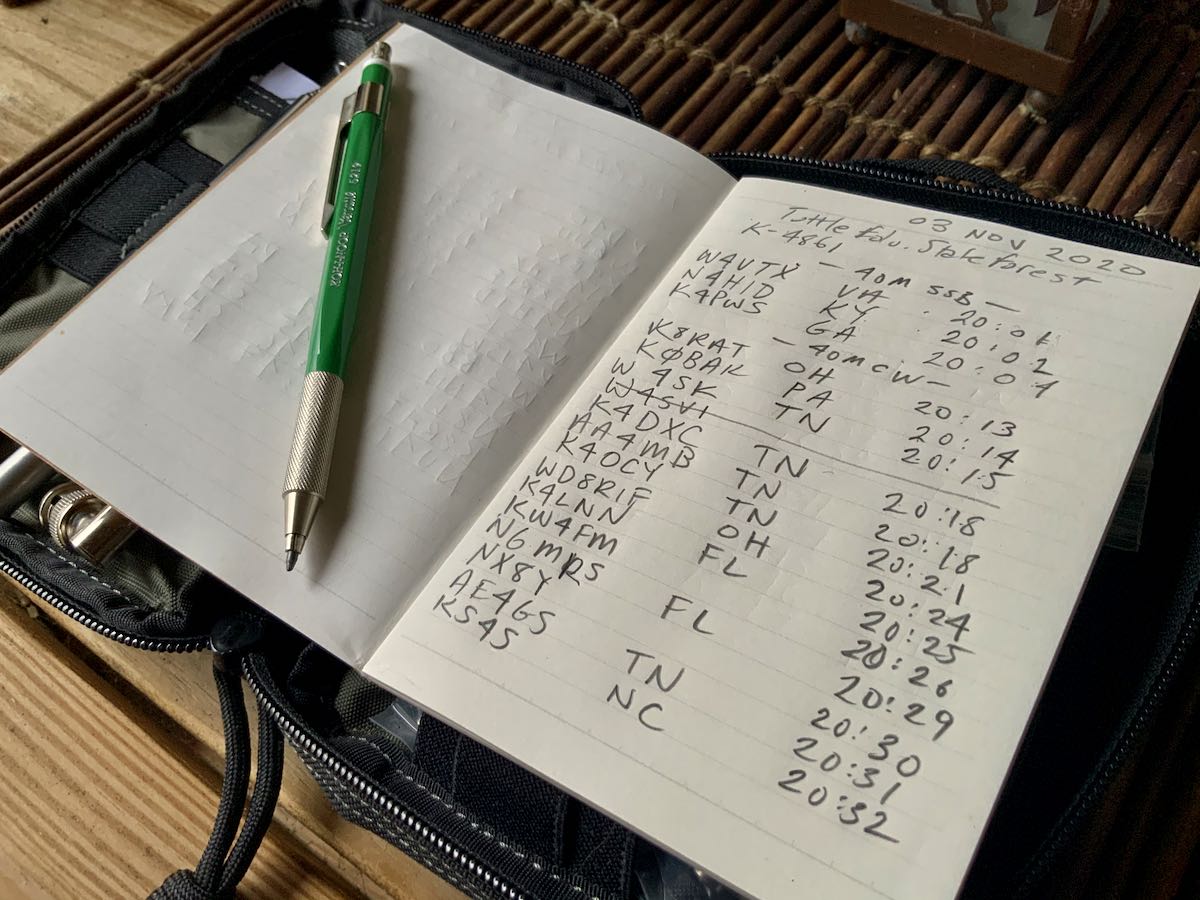 KOH-I-NOOR Versatil 5219
03 NOV 2020
Tuttle Edu. State Forest
K-4861
— 40m SSB —
W4VTX VA 20:01
N4HID KY 20:02
K4PWS GA 20:04
— 40m CW —
K8RAT OH 20:13
KØBAK PA 20:14
W4SK TN 20:15
W4SVI
K4DXC TN 20:18
AA4MB TN 20:18
K4OCY TN 20:21
WD8RIF OH 20:24
K4LNN FL 20:25
KW4FM 20:26
N6MRS FL 20:29
NX8Y 20:30
AE4GS TN 20:31
KS4S NC 20:32